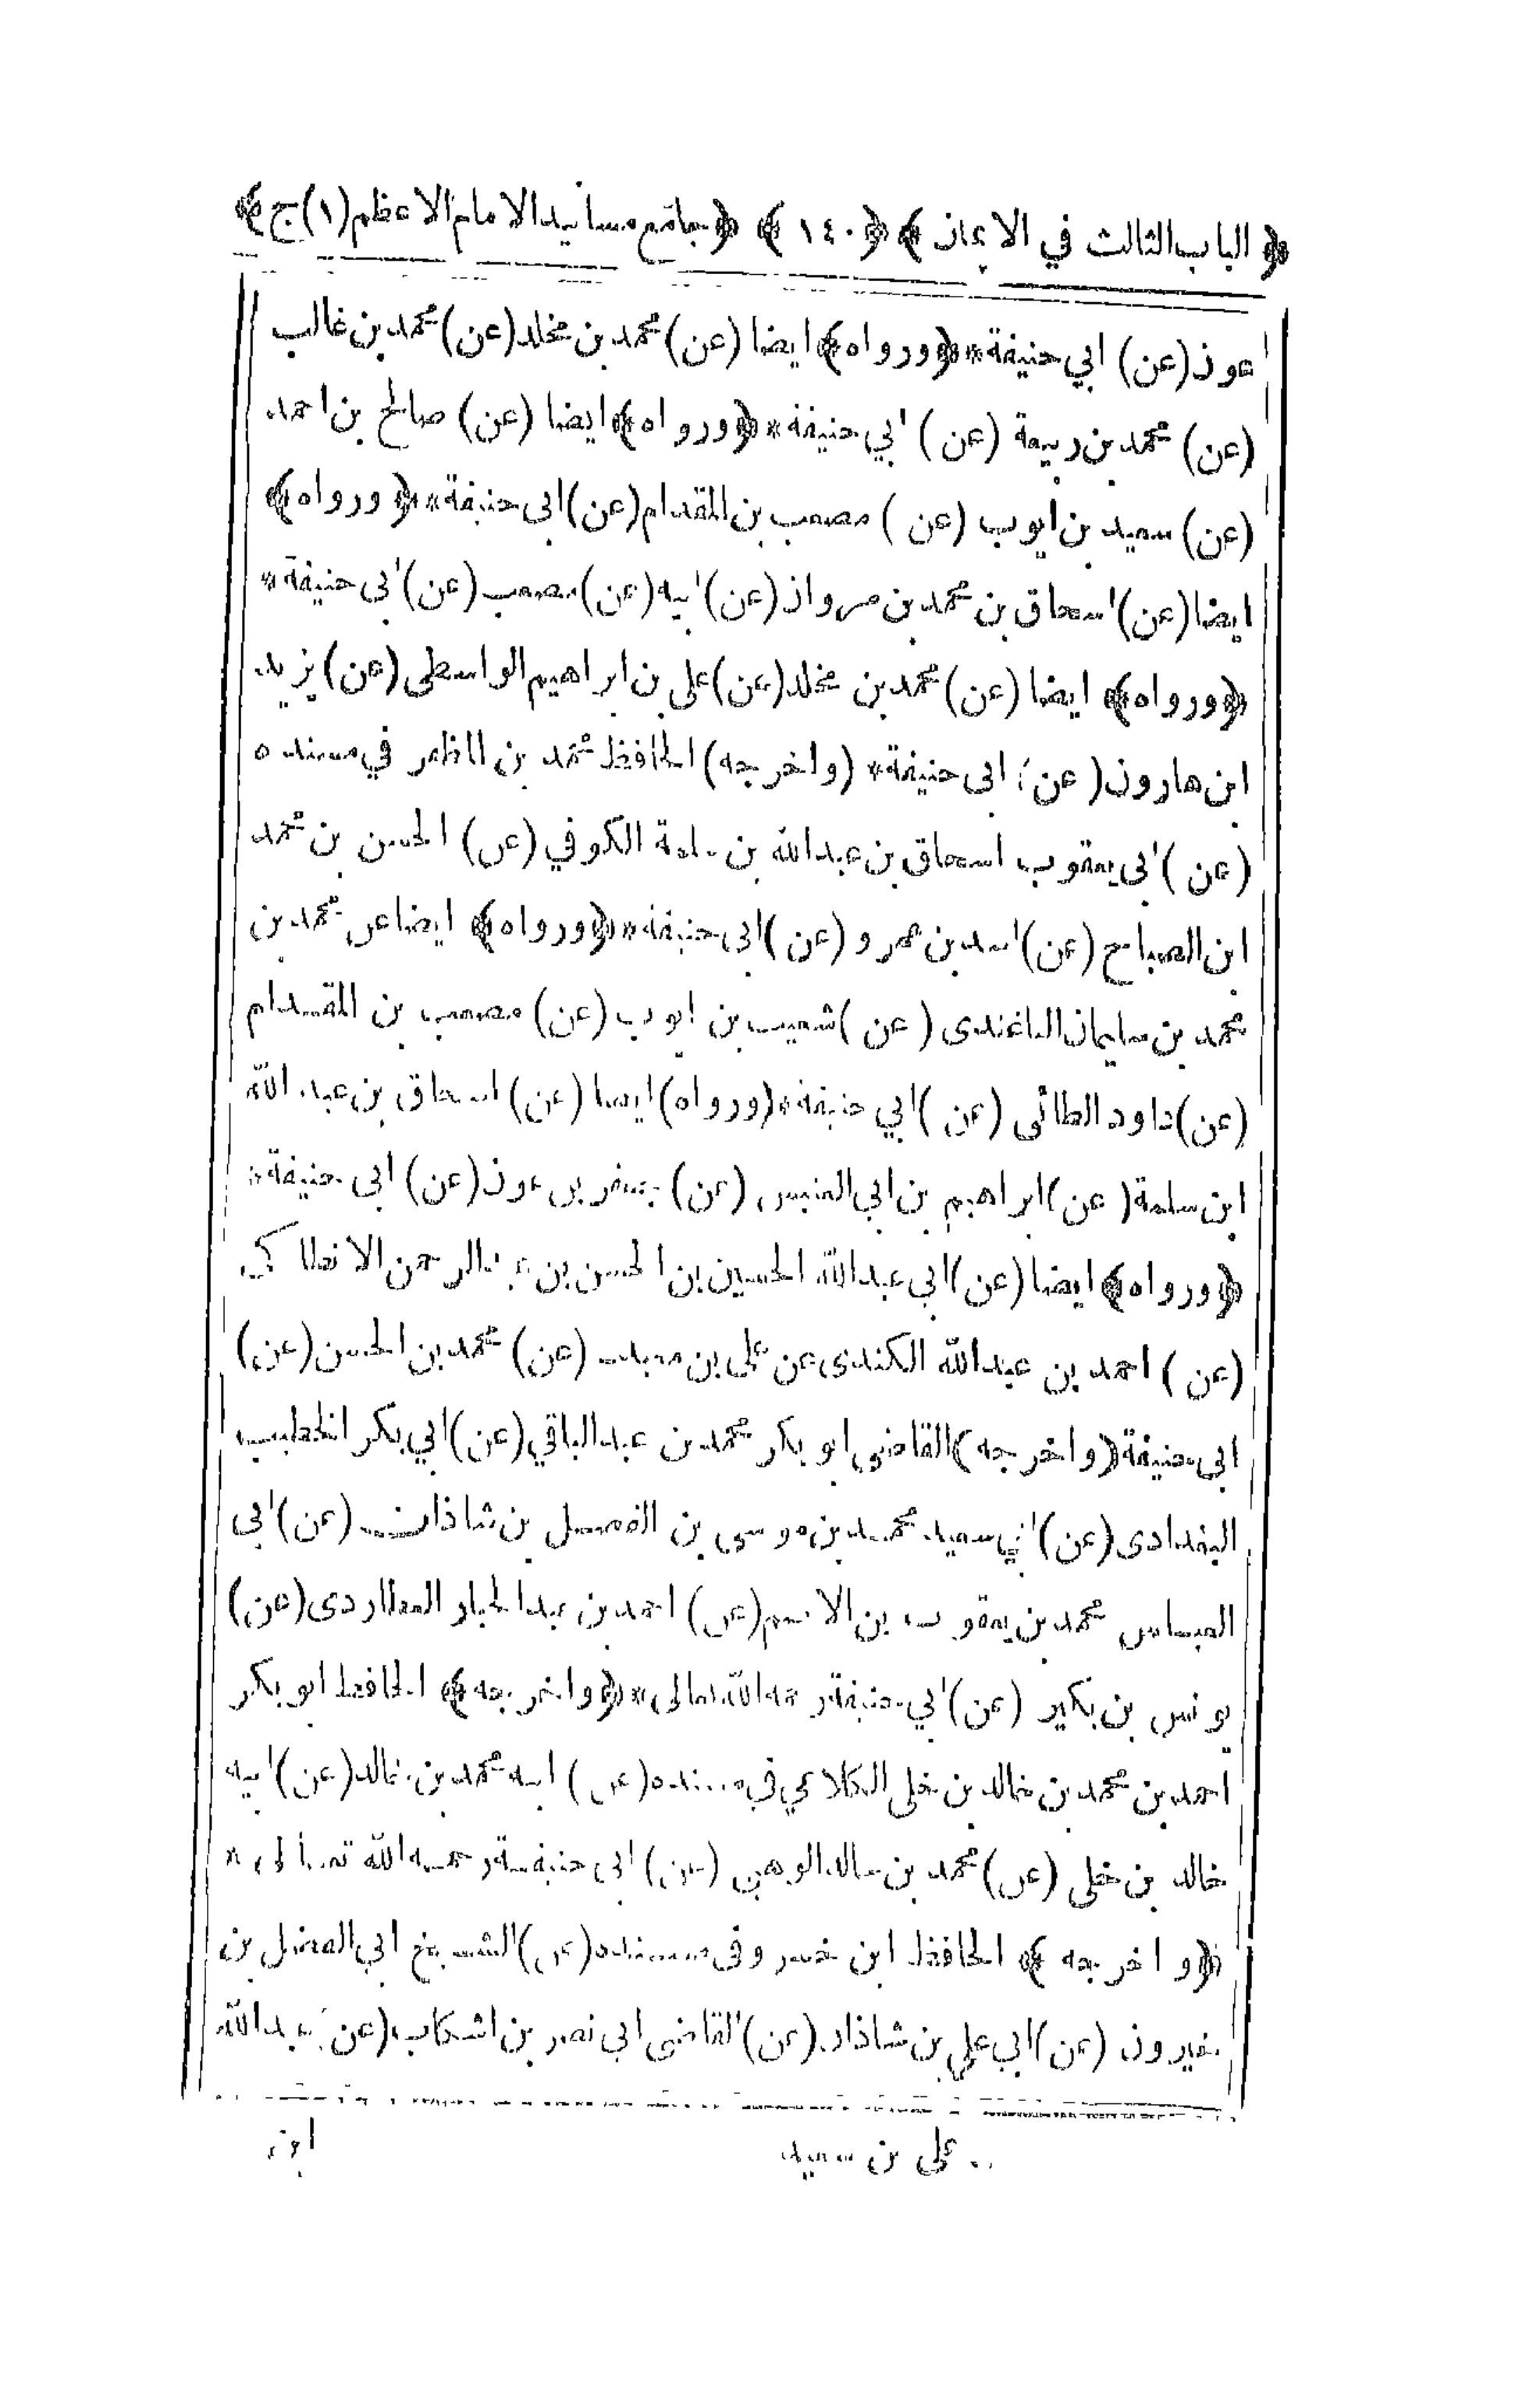 ﴿ الباب الثالث في الايمان ﴾ ﴿ ١٤٠ ﴾ ﴿ جامع مسانيد الامام الاعظم (١) ج ﴾
عون (عن) ابي حنيفة * ﴿ ورواه ﴾ ايضا (عن) محمد بن مخلد (عن) محمد بن غالب
(عن) محمد بن ربيعة (عن) ابي حنيفة * ﴿ ورواه ﴾ ايضا (عن) صالح بن احمد
(عن) سعيد بن ايوب (عن) مصعب بن المقدام (عن) ابى حنيفة * ﴿ ورواه ﴾
ايضا (عن) اسحاق بن محمد بن مروان (عن) ابيه (عن) مصعب (عن) ابى حنيفة *
﴿ ورواه ﴾ ايضا (عن) محمد بن مخلد (عن) على بن ابراهيم الواسطى (عن) يزيد
ابن هارون (عن) ابى حنيفة * (واخرجه) الحافظ محمد بن المظفر في مسنده
(عن) ابى يعقوب اسحاق بن عبدالله بن سلمة الكوفي (عن) الحسن بن محمد
ابن الصباح (عن) اسد بن عمرو (عن) ابى حنيفة * ﴿ ورواه ﴾ ايضا عن محمد بن
محمد بن سليمان الباغندى (عن) شعيب بن ايوب (عن) مصعب بن المقدام
(عن) داود الطائى (عن) ابي حنيفة * (ورواه) ايضا (عن) اسحاق بن عبد الله
ابن سلمة (عن) ابراهيم بن ابي العنبس (عن) جعفر بن عون (عن) ابى حنيفة *
﴿ ورواه ﴾ ايضا (عن) ابي عبدالله الحسين بن الحسن بن عبدالرحمن الانطاكى
(عن) احمد بن عبدالله الكندى عن على بن معبد (عن) محمد بن الحسن (عن)
ابى حنيفة (واخرجه) القاضى ابو بكر محمد بن عبدالباقي (عن) ابي بكر الخطيب
البغدادى (عن) ابي سعيد محمد بن موسى بن الفضل بن شاذان (عن) ابى
العباس محمد بن يعقوب بن الاصم (عن) احمد بن عبدالجبار العطاردى (عن)
يونس بن بكير (عن) ابي حنيفة رحمه الله تعالى * ﴿ واخرجه ﴾ الحافظ ابو بكر
احمد بن محمد بن خالد بن خلى الكلاعي في مسنده (عن) ابيه محمد بن خالد (عن) ابيه
خالد بن خلى (عن) محمد بن خالد الوهبي (عن) ابى حنيفة رحمه الله تعالى *
﴿ واخرجه ﴾ الحافظ ابن خسرو فى مسنده (عن) الشيخ ابي الفضل بن
خيرون (عن) ابي علي بن شاذان (عن) القاضى ابى نصر بن اشكاب (عن) عبدالله
على بن سعيد
ابن